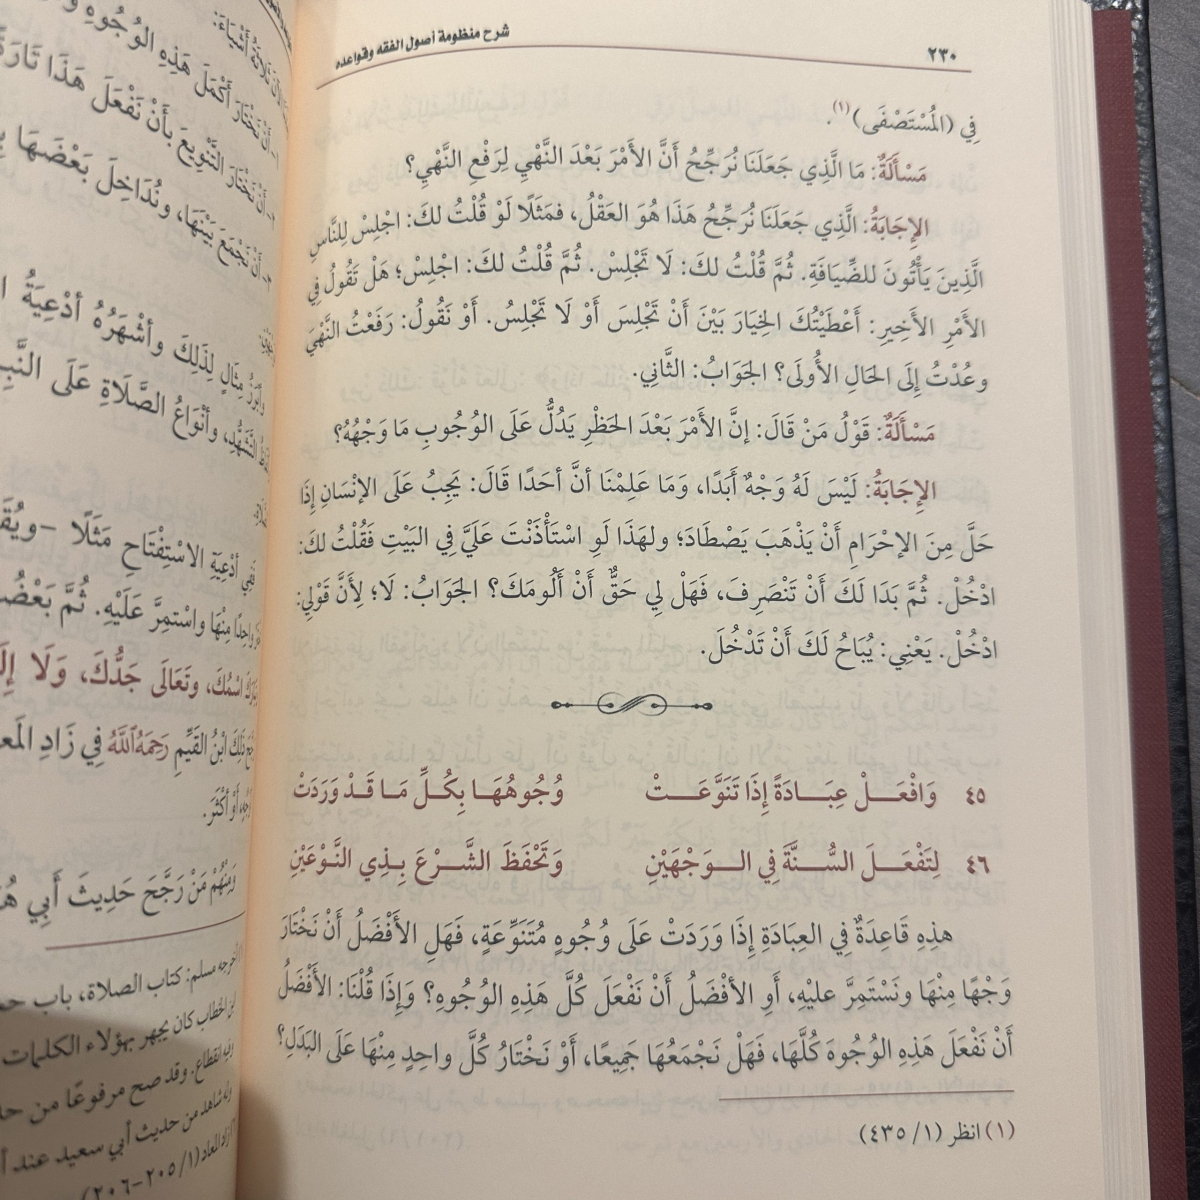 ٢٣٠
شرح منظومة أصول الفقه وقواعده
فِي (المُسْتَصْفَى)(١).
مَسْأَلَةٌ: مَا الَّذِي جَعَلَنَا نُرَجِّحُ أَنَّ الأَمْرَ بَعْدَ النَّهْيِ لِرَفْعِ النَّهْيِ؟
الإِجَابَةُ: الَّذِي جَعَلَنَا نُرَجِّحُ هَذَا هُوَ العَقْلُ، فَمَثَلًا لَوْ قُلْتُ لكَ: اجْلِسْ لِلنَّاسِ
الَّذِينَ يَأْتُونَ للضِّيَافَةِ. ثُمَّ قُلْتُ لكَ: لَا تَجْلِسْ. ثُمَّ قُلْتُ لكَ: اجْلِسْ؛ هَلْ تَقُولُ فِي
الأَمْرِ الأَخِيرِ: أَعْطَيْتُكَ الخِيَارَ بَيْنَ أَنْ تَجْلِسَ أَوْ لَا تَجْلِسُ. أَوْ نَقُولُ: رَفَعْتُ النَّهْيَ
وعُدْتُ إِلَى الحَالِ الأُولَى؟ الجَوَابُ: الثَّانِي.
مَسْأَلَةٌ: قَوْلُ مَنْ قَالَ: إنَّ الأَمْرَ بَعْدَ الحَظْرِ يَدُلُّ عَلَى الوُجُوبِ مَا وَجْهُهُ؟
الإِجَابَةُ: لَيْسَ لَهُ وَجْهٌ أَبَدًا، وَمَا عَلِمْنَا أنَّ أحَدًا قَالَ: يَجِبُ عَلَى الإنْسَانِ إِذَا
حَلَّ مِنَ الإحْرَامِ أَنْ يَذْهَبَ يَصْطَادَ؛ ولهَذَا لَوِ اسْتَأْذَنْتَ عَلَيَّ فِي البَيْتِ فَقُلْتُ لكَ:
ادْخُلْ. ثُمَّ بَدَا لَكَ أَنْ تَنْصَرِفَ، فَهَلْ لِي حَقٌّ أَنْ أَلُومَكَ؟ الجَوَابُ: لَا؛ لِأَنَّ قَوْلِي:
ادْخُلْ. يَعْنِي: يُبَاحُ لَكَ أَنْ تَدْخُلَ.
٤٥ وَافْعَلْ عِبَادَةً إِذَا تَنَوَّعَتْ وُجُوهُهَا بِكُلِّ مَا قَدْ وَرَدَتْ
٤٦ لِتَفْعَلَ السُّنَّةَ فِي الوَجْهَيْنِ وَتَحْفَظَ الشَّرْعَ بِذِي النَّوْعَيْنِ
هذِهِ قَاعِدَةٌ فِي العِبَادَةِ إِذَا وَرَدَتْ عَلَى وُجُوهٍ مُتَنَوِّعَةٍ، فَهَلِ الأَفْضَلُ أَنْ نَخْتَارَ
وَجْهًا مِنْهَا ونَسْتَمِرَّ عليْهِ، أَوِ الأفْضَلُ أَنْ نَفْعَلَ كُلَّ هَذِهِ الوُجُوهِ؟ وَإِذَا قُلْنَا: الأَفْضَلُ
أَنْ نَفْعَلَ هَذِهِ الوُجُوهَ كُلَّهَا، فَهَلْ نَجْمَعُهَا جَمِيعًا، أَوْ نَخْتَارُ كُلَّ واحِدٍ مِنْهَا عَلَى البَدَلِ؟
(١) انظر (١/ ٤٣٥)
ثَلَاثَةُ أَشْيَاءَ:
١- أَنْ نَخْتَارَ أَكْمَلَ هَذِهِ الوُجُوهِ
٢- أَنْ نَخْتَارَ التَّنْوِيعَ بِأَنْ نَفْعَلَ هَذَا تَارَةً
٣- أَنْ نَجْمَعَ بَيْنَهَا، ونُدَاخِلَ بَعْضَهَا
وأبْرَزُ مِثَالٍ لِذَلِكَ وأَشْهَرُهُ أدْعِيَةُ
التَّشَهُّدِ، وأنْوَاعُ الصَّلَاةِ عَلَى النَّبِيِّ
فَفِي أدْعِيَةِ الاسْتِفْتَاحِ مَثَلًا
واحِدًا مِنْهَا واسْتِمِرَّ عَلَيْهِ. ثُمَّ بَعْضُ
اسْمُكَ، وتَعَالَى جَدُّكَ، وَلَا إِلَهَ
ذَلِكَ ابْنُ القَيِّمِ رَحِمَهُ اللَّهُ فِي زَادِ
أَوْ أَكْثَرَ.
وَمِنْهُمْ مَنْ رَجَّحَ حَدِيثَ أَبِي
أخرجه مسلم: كتاب الصلاة، باب
الخطاب كان يجهر بهؤلاء الكلمات
وفيه انقطاع. وقد صح مرفوعًا من
وله شاهد من حديث أبي سعيد عند
زاد المعاد (١/ ٢٠٥-٢٠٦)